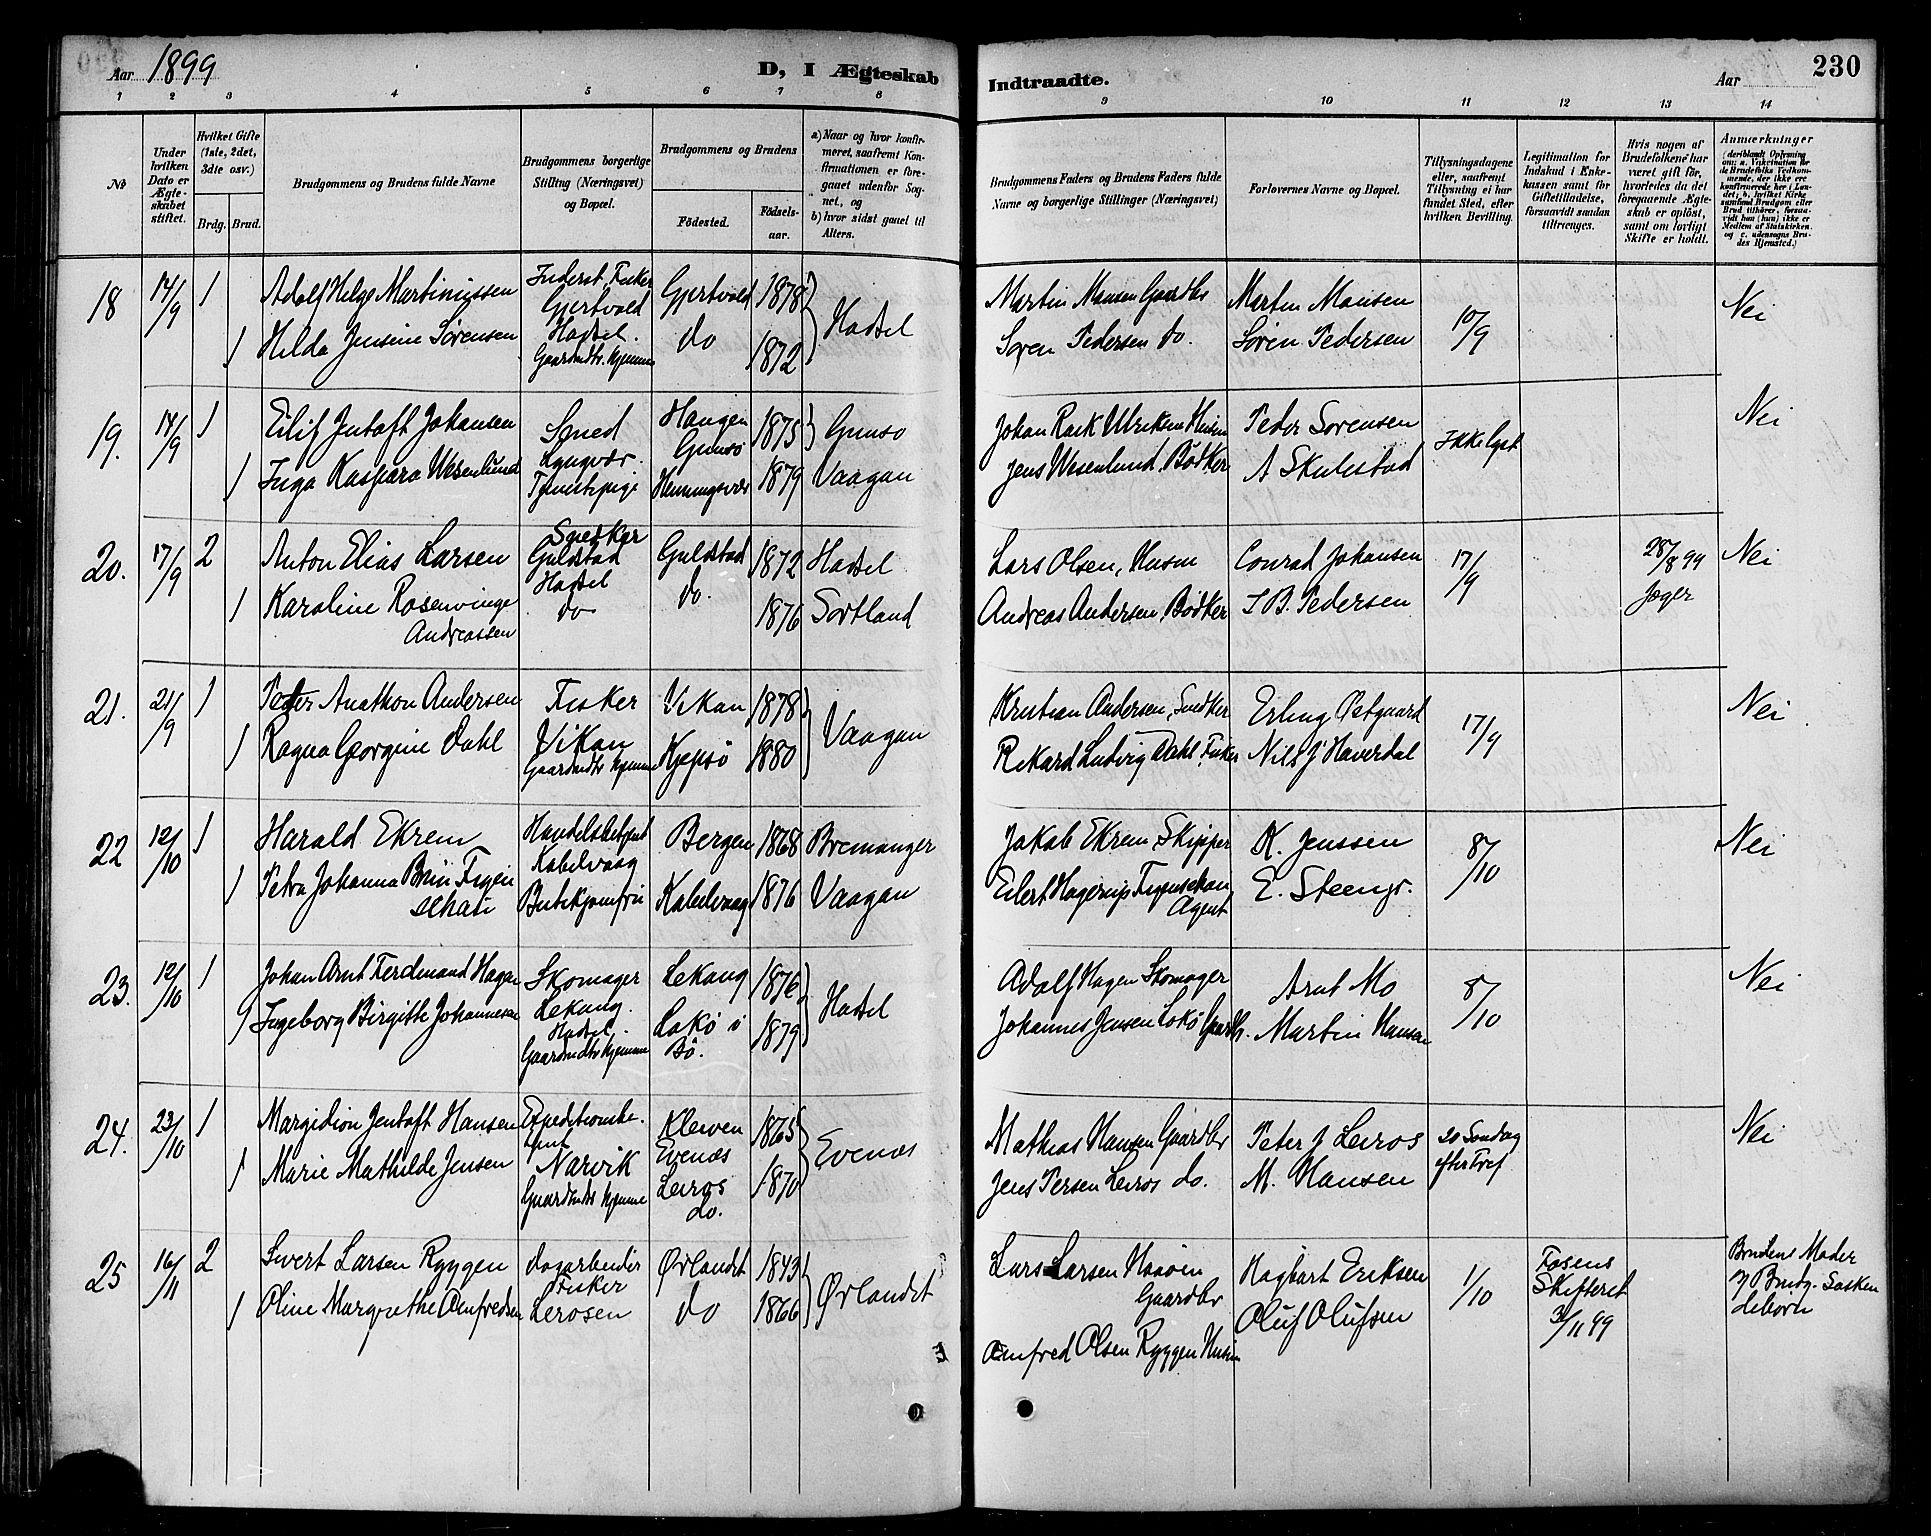 Aar 1899
D, I Ægteskab
Indtraadte.
Aar
230
1 2 3 4 5 6 7 8
9 10 11 12 13 14
No
Under hvilken Dato er Ægteskabet stiftet.
Hvilket Gifte (1ste, 2det, 3dte osv.)
Brdg. Brud.
Brudgommens og Brudens fulde Navne
Brudgommens borgerlige Stilling (Næringsvei) og Bopæl.
Brudgommens og Brudens
Fødested.
Fødselsaar.
a) Naar og hvor konfirmeret, saafremt Konfirmationen er foregaaet udenfor Sognet, og
b) hvor sidst gaaet til Alters.
Brudgommens Faders og Brudens Faders fulde Navne og borgerlige Stillinger (Næringsvei)
Forlovernes Navne og Bopæl.
Tillysningsdagene eller, saafremt Tillysning ei har fundet Sted, efter hvilken Bevilling.
Legitimation for Indskud i Enkekassen samt for Giftetilladelse, forsaavidt saadan tiltrænges.
Hvis nogen af Brudefolkene har været gift før, hvorledes da det foregaaende Ægteskab er opløst, samt om lovligt Skifte er holdt.
Anmærkninger
18 14/9 1 Adolf Helge Martinussen Inderst, Fisker Gjertvold 1878 Hadsel
Gjertvold
1 Hilda Jensine Sørensen Hadsel. do 1872
Gaardmdtr. hjemme
Martin Hansen Gaardbr Martin Hansen 10/9 Nei
Søren Pedersen do. Søren Pedersen
19. 14/9 1 Eilif Jentoft Johansen Smed Haugen 1875 Gimsø
Lyngvær. Gimsø
1 Inga Kaspara Wesenlund Tjenestepige Henningsvær 1879 Vaagan
Johan Rask Ulriksen Husm Peder Sørensen Ikke lyst Nei
Jens Wesenlund, Bødker A Skulestad
20. 17/9 2 Anton Elias Larsen Snedker Guldstad 1872 Hadsel
Guldstad
Hadsel
1 Karoline Rosenvinge do do. 1876 Sortland
Andreassen
Lars Olsen, Husm Conrad Johansen 17/9 28/8 99 Nei
Andreas Andersen, Bødker I B. Pedersen Jæger
21. 21/9 1 Peder Anathon Andersen Fisker Vikan 1878 Vaagan
Vikan
1 Ragna Georgine Dahl Gaardmdtr hjemme Kjepsø 1880
Kristian Andersen, Snedker Erling Østgaard 17/9 Nei
Rikard Ludvig Dahl, Fisker Nils J Haverdal
22 12/10 1 Harald Ekrem Handelsbetjent Bergen 1868 Bremanger
Kabelvaag
1 Petra Johanna Brun Figen Butikjomfru Kabelvaag 1876 Vaagan
schau
Jakob Ekrem, Skipper K. Jenssen 8/10 Nei
Eilert Hagerup Figenschau E. Steengr.
Agent
23. 12/10 1 Johan Arnt Ferdinand Hagen Skomager Lekang 1876 Hadsel
Lekang.
1 Ingeborg Birgitte Johannesen Hadsel. Lokø i 1879
Gaardmdtr hjemme Bø.
Adolf Hagen Skomager Arnt Mo 8/10 Nei
Johannes Jensen Lokø Gaardb. Martin Hansen
24. 23/10 1 Margidion Jentoft Hansen Expeditionsbe- Kleiven 1865 Evenæs
tjent Evenæs
1 Marie Mathilde Jensen Narvik Leiros 1870
Gaardmdtr hjemme do.
Mathias Hansen Gaardbr Peter J Leiros 20 Søndag Nei
Jens Persen Leiros do. M. Hansen efter Tref
25 16/11 2 Sivert Larsen Ryggen Dagarbeider Ørlandet 1843 Ørlandet
Fisker
1 Oline Margrethe Arnfredsen Lerosen do 1866
Lars Larsen Haaøen Hagbart Eriksen 1/10 Fosens Brudens Moder
Gaardbr Oluf Olufsen Skifteret og Brudg. Søsken
3/11 99 debørn
Arnfred Olsen Ryggen Husm